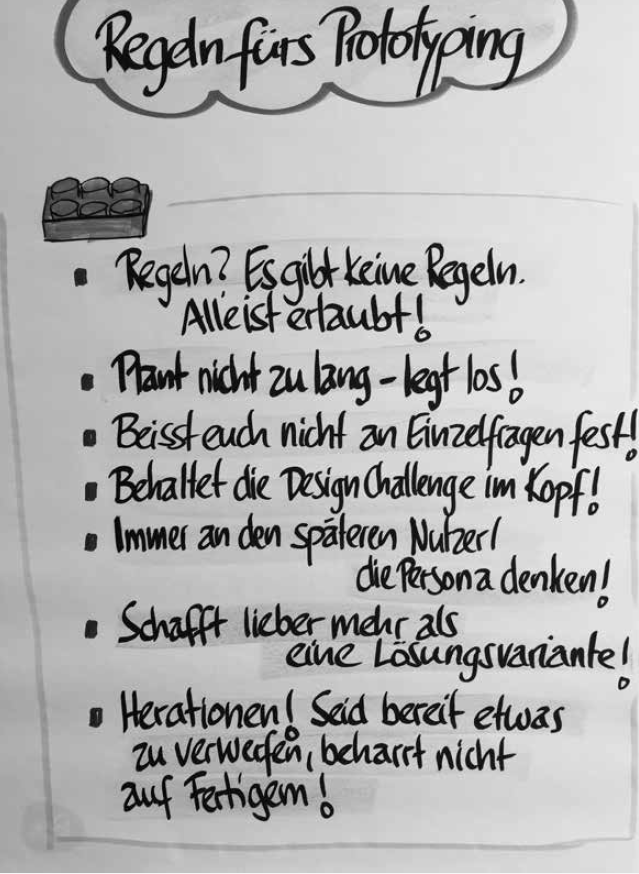 Regeln fürs Prototyping
Regeln? Es gibt keine Regeln.
Alle ist erlaubt!
Plant nicht zu lang - legt los!
Beisst euch nicht an Einzelfragen fest!
Behaltet die Design Challenge im Kopf!
Immer an den späteren Nutzer/
die Persona denken!
Schafft lieber mehr als
eine Lösungsvariante!
Iterationen! Seid bereit etwas
zu verwerfen, beharrt nicht
auf Fertigem!